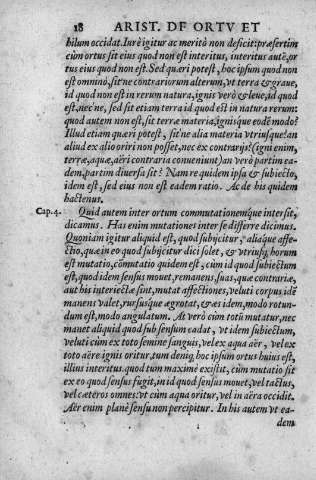 18 ARIST. DE ORTV ET
hilum occidat. Iure igitur ac meritò non deficit: præsertim
cùm ortus sit eius quod non est interitus, interitus autē, or
tus eius quod non est. Sed quæri potest, hoc ipsum quod non
est omnino, sit'ne contrariorum alterum, vt terra & graue,
id quod non est in rerum natura, ignis verò & leue, id quod
est, nec'ne, sed sit etiam terra id quod est in natura rerum:
quod autem non est, sit terræ materia, ignisque eodē modo?
Illud etiam quæri potest, sit'ne alia materia vtriusque? an
aliud ex alio oriri non posset, nec ex contrarijs? (igni enim,
terræ, aquæ, aëri contraria conueniunt) an verò partim ea-
dem, partim diuersa sit? Nam re quidem ipsa & subiecto,
idem est, sed eius non est eadem ratio. Ac de his quidem
hactenus.
Cap. 4. Quid autem inter ortum commutationemque intersit,
dicamus. Has enim mutationes inter se differre dicimus.
Quoniam igitur aliquid est, quod subijcitur, aliaque affe-
ctio, quæ in eo quod subijcitur dici solet, & vtriusq; horum
est mutatio, cōmutatio quidem est, cùm id quod subiectum
est, quod idem sensus mouet, remanens, suas, quæ contrariæ,
aut his interiectæ sint, mutat affectiones, veluti corpus idē
manens valet, rursusque ægrotat, & æs idem, modo rotun-
dum est, modo angulatum. At verò cùm totū mutatur, nec
manet aliquid quod sub sensum cadat, vt idem subiectum,
veluti cùm ex toto semine sanguis, vel ex aqua aër, vel ex
toto aëre ignis oritur, tum deniq; hoc ipsum ortus huius est,
illius interitus. quod tum maximè existit, cùm mutatio sit
ex eo quod sensus fugit, in id quod sensus mouet, vel tactus,
vel cæteros omnes: vt cùm aqua oritur, vel in aëra occidit.
Aër enim planè sensu non percipitur. In his autem vt ea-
dem